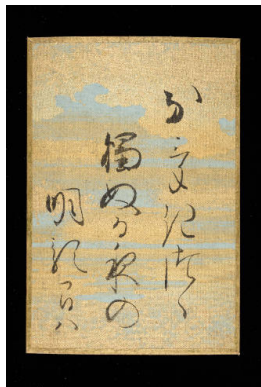 なけきつゝ
獨ぬる夜の
明るまは